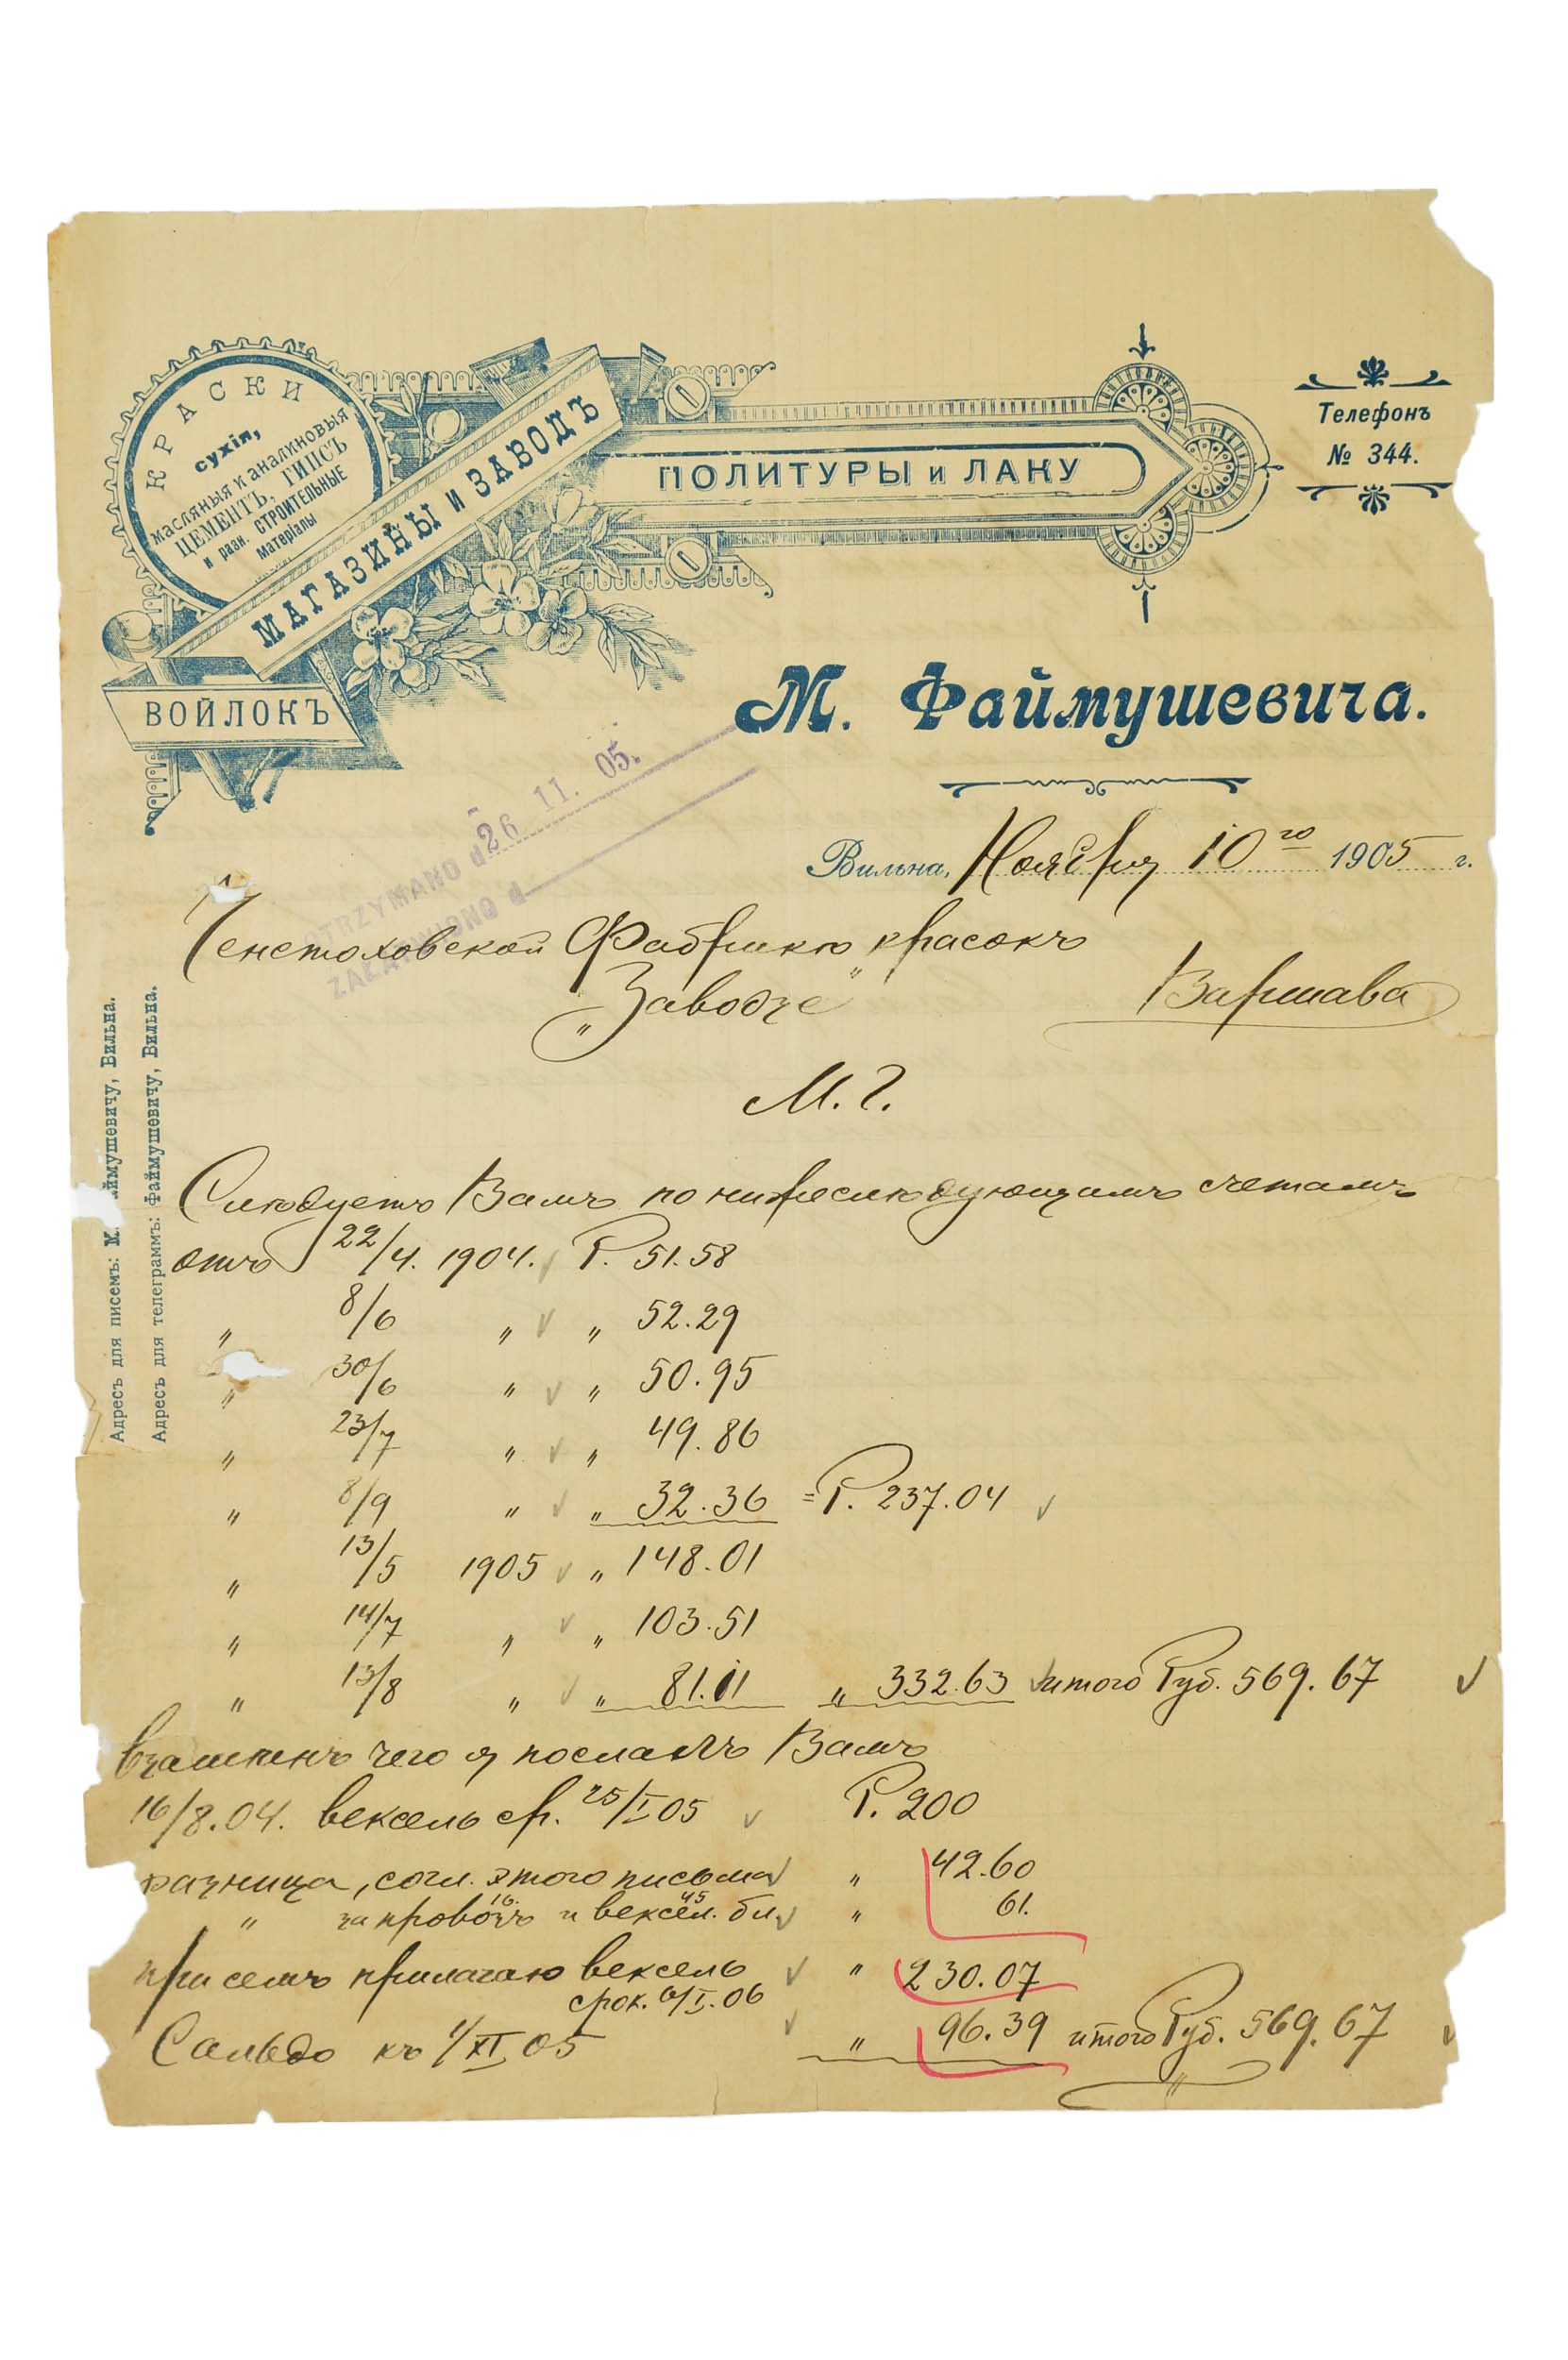 КРАСКИ
сухія,
масляныя и аналиновыя
ЦЕМЕНТЪ, ГИПСЪ
и разн. СТРОИТЕЛЬНЫЕ
матеріалы
МАГАЗИНЫ И ЗАВОДЪ
ВОЙЛОКЪ
ПОЛИТУРЫ и ЛАКУ
Телефонъ
№ 344.
М. Файмушевича.
OTRZYMANO d 26 11. 05.
ZAŁATWIONO d
Вильна, Ноября 10го 1905 г.
Ченстоховской Фабрикѣ красокъ
„Заводзе" Варшава
М. Г.
Слѣдуетъ Вамъ по нижеслѣдующимъ счетамъ
отъ 22/4. 1904. Р. 51.58
„ 8/6 „ „ 52.29
„ 30/6 „ „ 50.95
„ 23/7 „ „ 49.86
„ 8/9 „ „ 32.36 = Р. 237.04
„ 13/5 1905 „ 148.01
„ 14/7 „ „ 103.51
„ 13/8 „ „ 81.11 „ 332.63 итого Руб. 569.67
взамѣнъ чего я послалъ Вамъ
16/8.04. вексель ср. 25/I 05 Р. 200
разница, согл. этого письма „ 42.60
„ за провозъ 16. и вексел. бл. 45 „ 61.
при семъ прилагаю вексель „ 230.07
срок. 6/I. 06
Сальдо къ 1/XI 05 „ 96.39 итого Руб. 569.67
Адресъ для писемъ: М. аймушевичу, Вильна.
Адресъ для телеграммъ: Файмушевичу, Вильна.